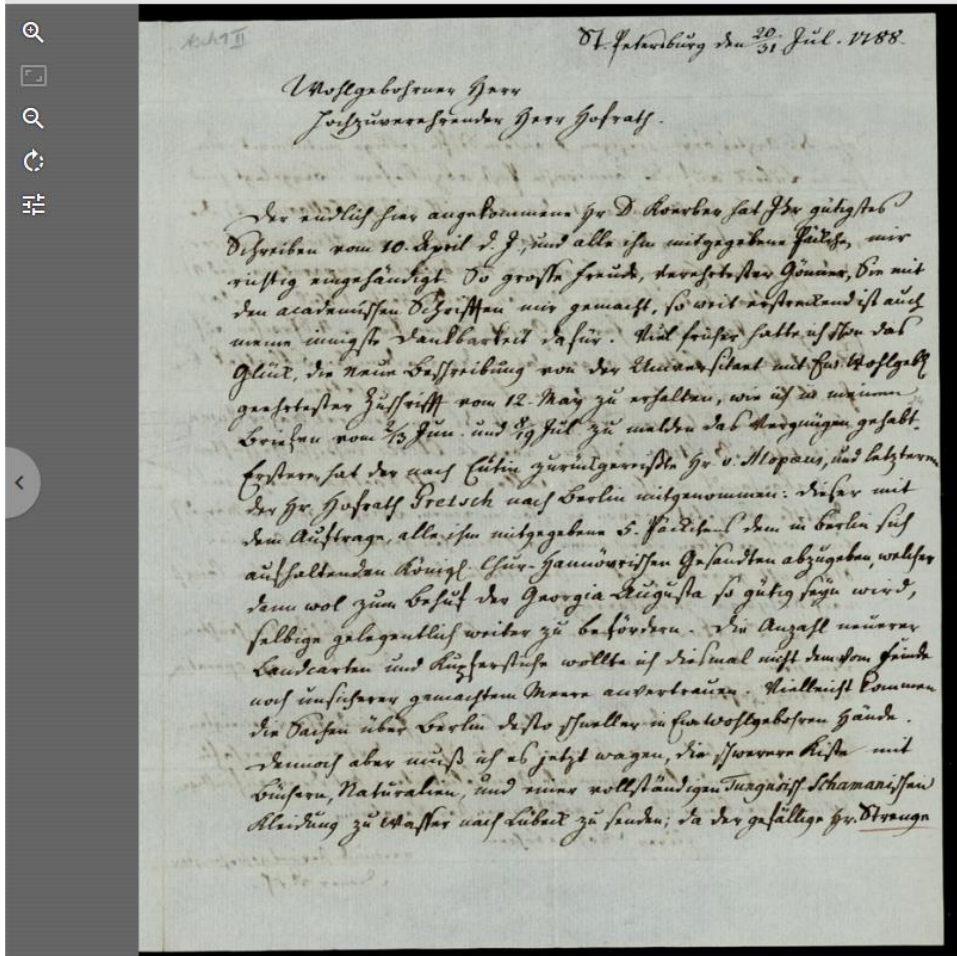 Asch 1 II
St. Petersburg den 20/31 Jul. 1788.
Wohlgebohrner Herr
Hochzuverehrender Herr Hofrath.
Der endlich hier angekommene Hr D. Koerber hat Ihr gütigstes
Schreiben vom 10. April d. J., und alle ihm mitgegebene Päckche, mir
richtig eingehändigt. So grosse Freude, verehrtester Gönner, Sie mit
den academischen Schrifften mir gemacht, so weit erstreckend ist auch
meine innigste Dankbarkeit dafür. Viel früher hatte ich schon das
Glück, die neue Beschreibung von der Universitaet mit Ew. Wohlgeb.
geehrtester Zuschrifft vom 12. May zu erhalten, wie ich in meinen
Briefen vom 2/13 Jun. und 8/19 Jul. zu melden das Vergnügen gehabt.
Ersteren hat der nach Eutin zurückgereißte Hr. v. Alopaus, und letzteren
der Hr. Hofrath Gretsch nach Berlin mitgenommen: dieser mit
dem Auftrage, alle ihm mitgegebene 5. Päckchens dem in Berlin sich
aufhaltenden Königl. Chur-Hannövrischen Gesandten abzugeben, welcher
dann wol zum Behuf der Georgia Augusta so gütig seyn wird,
selbige gelegentlich weiter zu befördern. Die Anzahl neuerer
Landcarten und Kupferstiche wollte ich diesmal nicht dem vom Feinde
noch unsicherer gemachtem Meere anvertrauen. Vielleicht kommen
die Sachen über Berlin desto schneller in Ew. Wohlgebohren Hände.
Dennoch aber muß ich es jetzt wagen, die schwerere Kiste mit
Büchern, Naturalien, und einer vollständigen Tungusisch-Schamanischen
Kleidung zu Wasser nach Lübeck zu senden; da der gefällige Hr. Strenge